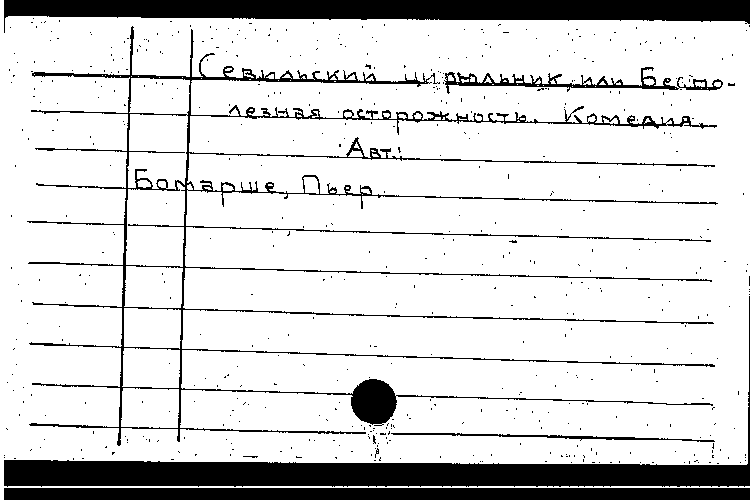 Севильский цирюльник, или Беспо-
лезная осторожность. Комедия.
Авт.:
Бомарше, Пьер.